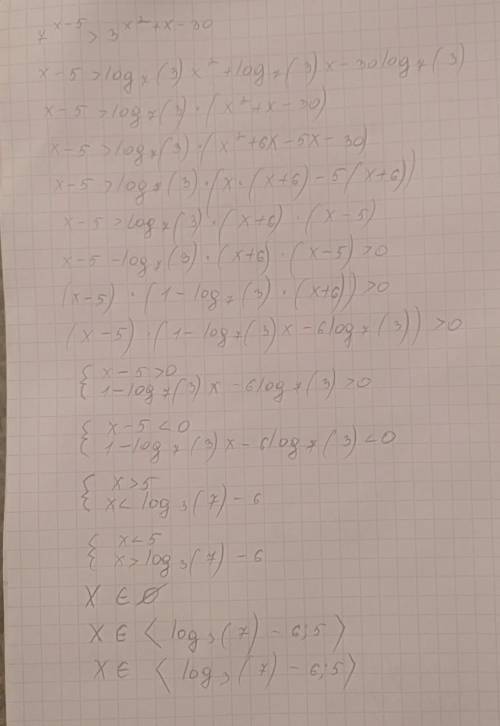 7^(x-5) > 3^(x²+x-30)
x-5 > log₇(3)x² + log₇(3)x - 30log₇(3)
x-5 > log₇(3)·(x²+x-30)
x-5 > log₇(3)·(x²+6x-5x-30)
x-5 > log₇(3)·(x·(x+6)-5(x+6))
x-5 > log₇(3)·(x+6)·(x-5)
x-5-log₇(3)·(x+6)·(x-5)>0
(x-5)·(1-log₇(3)·(x+6))>0
(x-5)·(1-log₇(3)x-6log₇(3))>0
{ x-5>0
{ 1-log₇(3)x-6log₇(3)>0
{ x-5<0
{ 1-log₇(3)x-6log₇(3)<0
{ x>5
{ x<log₃(7)-6
{ x<5
{ x>log₃(7)-6
X ∈ ∅
X ∈ ⟨log₃(7)-6;5⟩
X ∈ ⟨log₃(7)-6;5⟩